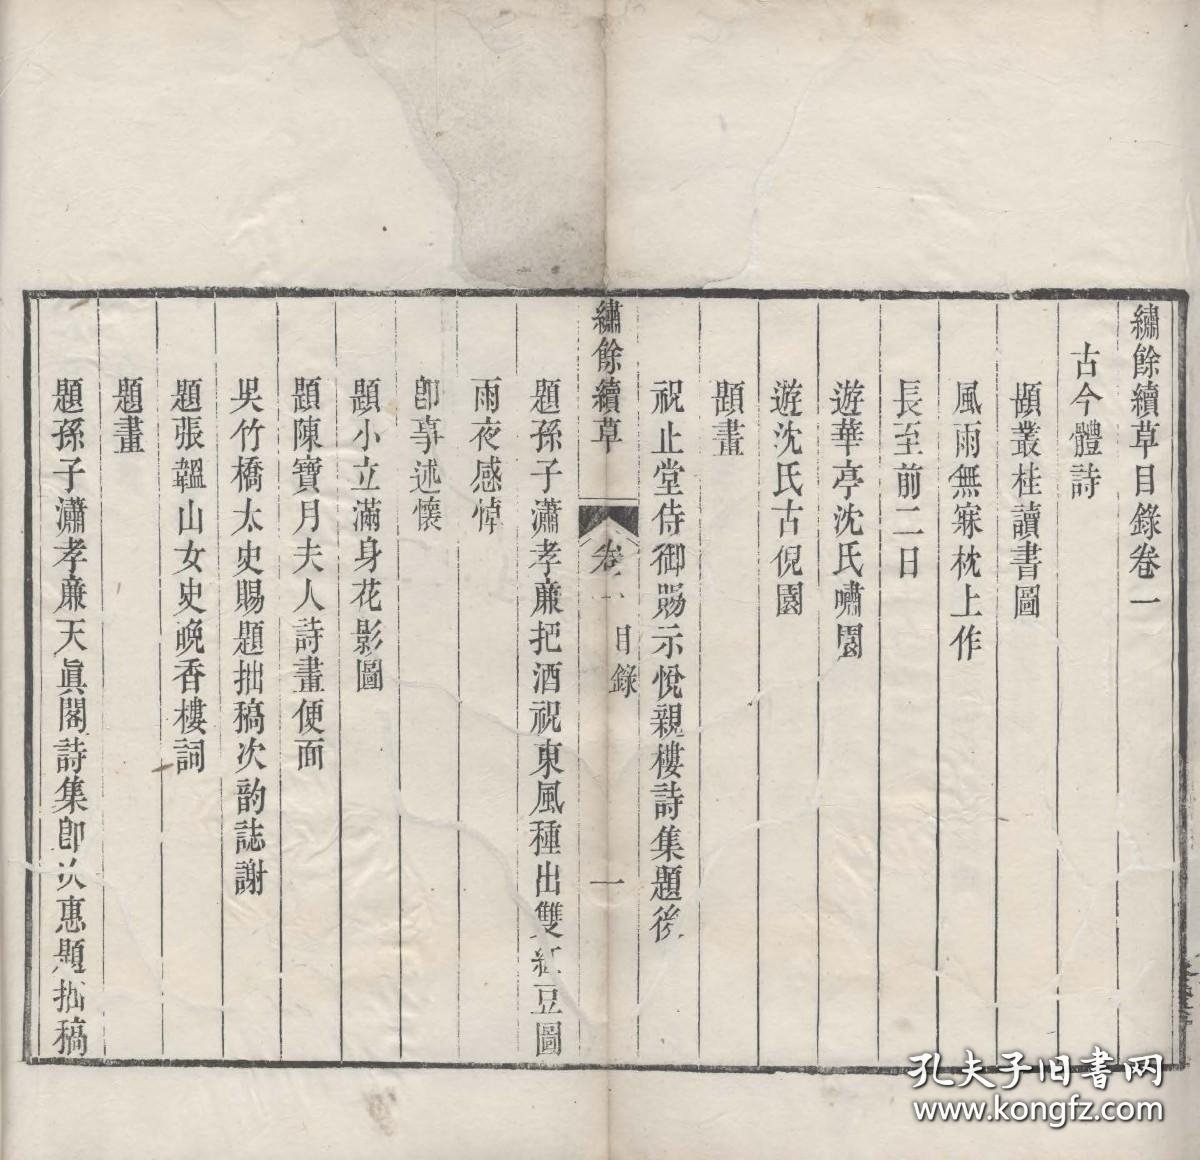 繡餘續草目錄卷一
古今體詩
題叢桂讀書圖
風雨無寐枕上作
長至前二日
遊華亭沈氏嘯園
遊沈氏古倪園
題畫
祝止堂侍御賜示悅親樓詩集題後
繡餘續草
卷一
目錄
一
題孫子瀟孝廉把酒祝東風種出雙紅豆圖
雨夜感悼
卽事述懷
題小立滿身花影圖
題陳寶月夫人詩畫便面
吳竹橋太史賜題拙稿次韵誌謝
題張韞山女史晚香樓詞
題畫
題孫子瀟孝廉天眞閣詩集卽次惠題拙稿
孔夫子旧书网
www.kongfz.com